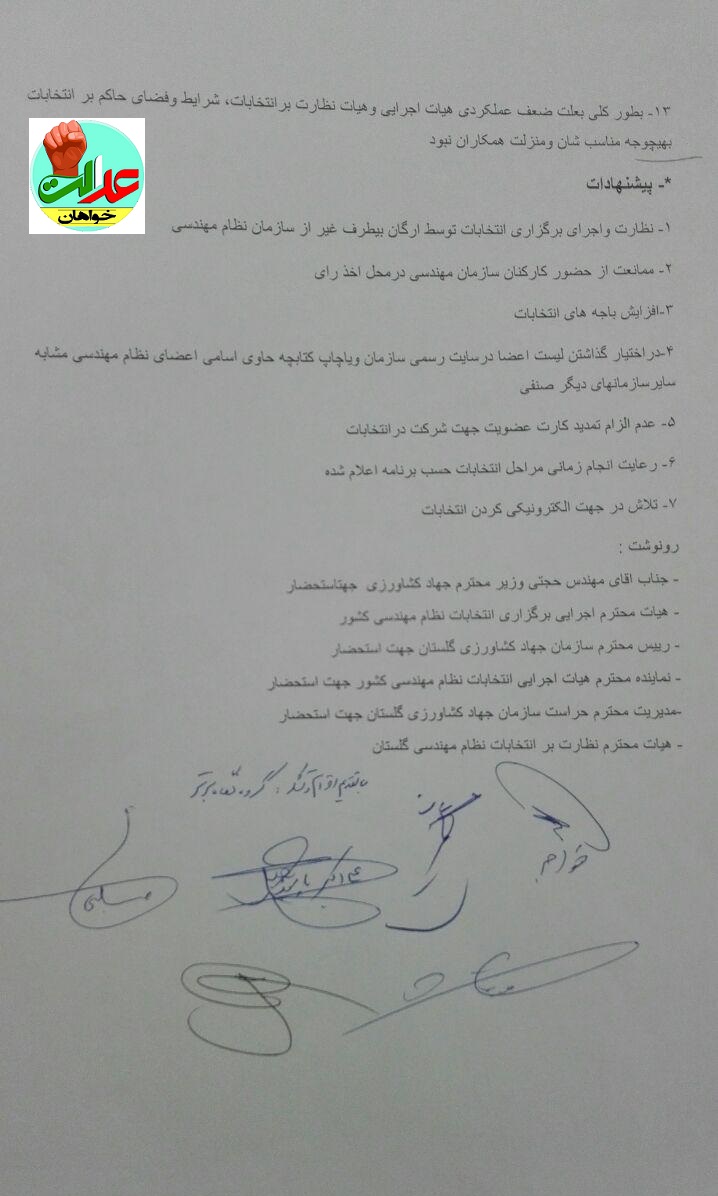 ۱۳- بطور کلی بعلت ضعف عملکردی هیات اجرایی وهیات نظارت برانتخابات، شرایط وفضای حاکم بر انتخابات
بهیچوجه مناسب شان ومنزلت همکاران نبود
عدالت
خواهان
*- پیشنهادات
۱- نظارت واجرای برگزاری انتخابات توسط ارگان بیطرف غیر از سازمان نظام مهندسی
۲- ممانعت از حضور کارکنان سازمان مهندسی درمحل اخذ رای
۳-افزایش باجه های انتخابات
۴-دراختیار گذاشتن لیست اعضا درسایت رسمی سازمان ویاچاپ کتابچه حاوی اسامی اعضای نظام مهندسی مشابه
سایرسازمانهای دیگر صنفی
۵- عدم الزام تمدید کارت عضویت جهت شرکت درانتخابات
۶- رعایت انجام زمانی مراحل انتخابات حسب برنامه اعلام شده
۷- تلاش در جهت الکترونیکی کردن انتخابات
رونوشت :
- جناب اقای مهندس حجتی وزیر محترم جهاد کشاورزی جهتاستحضار
- هیات محترم اجرایی برگزاری انتخابات نظام مهندسی کشور
- رییس محترم سازمان جهاد کشاورزی گلستان جهت استحضار
- نماینده محترم هیات اجرایی انتخابات نظام مهندسی کشور جهت استحضار
-مدیریت محترم حراست سازمان جهاد کشاورزی گلستان جهت استحضار
- هیات محترم نظارت بر انتخابات نظام مهندسی گلستان